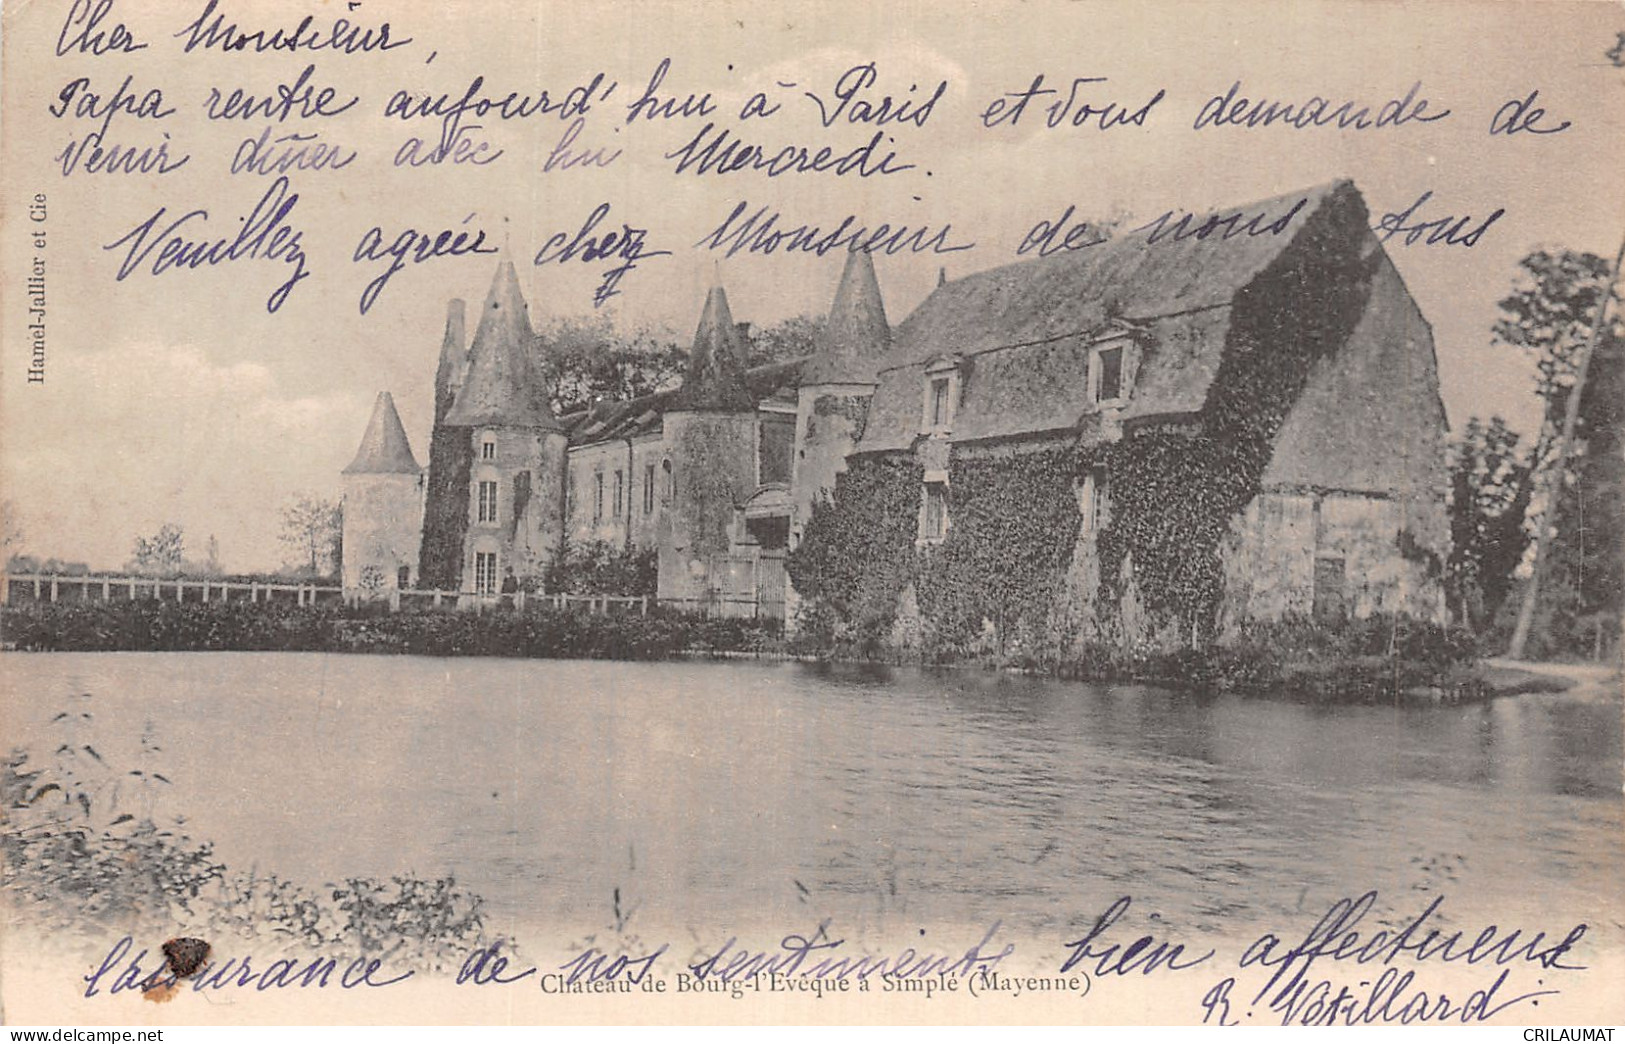 Cher Monsieur,
Papa rentre aujourd'hui à Paris et vous demande de
venir dîner avec lui Mercredi.
Veuillez agréer cher Monsieur de nous tous
Hamel-Jallier et Cie
l'assurance de nos sentiments bien affectueux
Château de Bourg-l'Évêque à Simplé (Mayenne)
R. Vétillard
CRILAUMAT